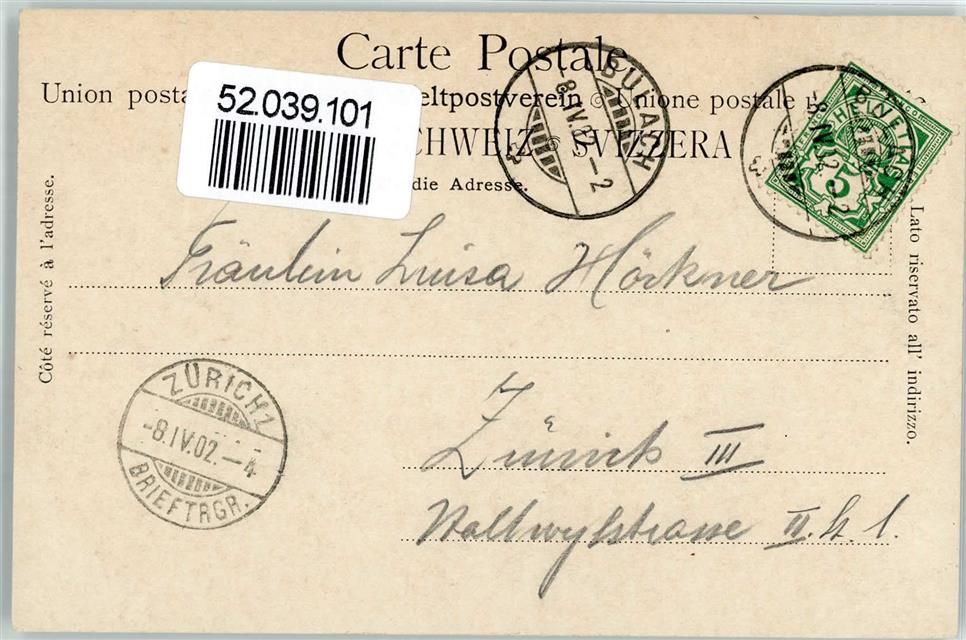 Carte Postale
Union posta
eltpostverein
Unione postale
52.039.101
CHWEIZ SVIZZERA
die Adresse.
BÜLACH
-8.IV.02.-2
HELVETIA
5
Côté réservé à l'adresse.
Lato riservato all' indirizzo.
Fräulein Luisa Hörkner
ZÜRICH 1
-8.IV.02.-4
BRIEFTRGR.
Zürich III
II.